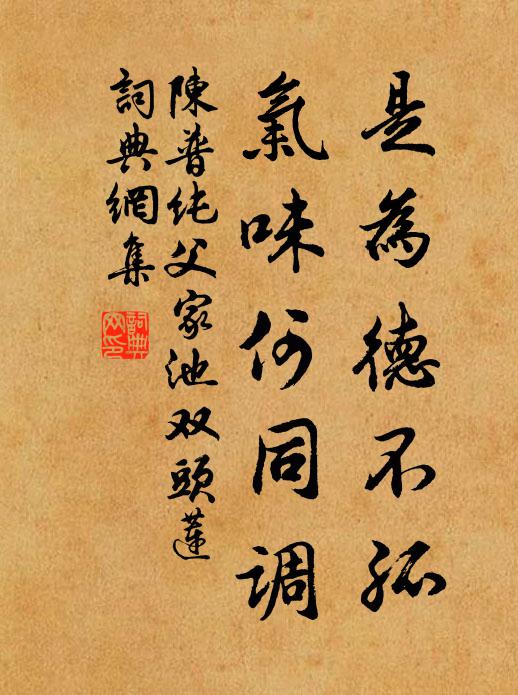 是為德不孤
氣味何同調
陳普純父家池双頭蓮
詞典網集
詞典網印